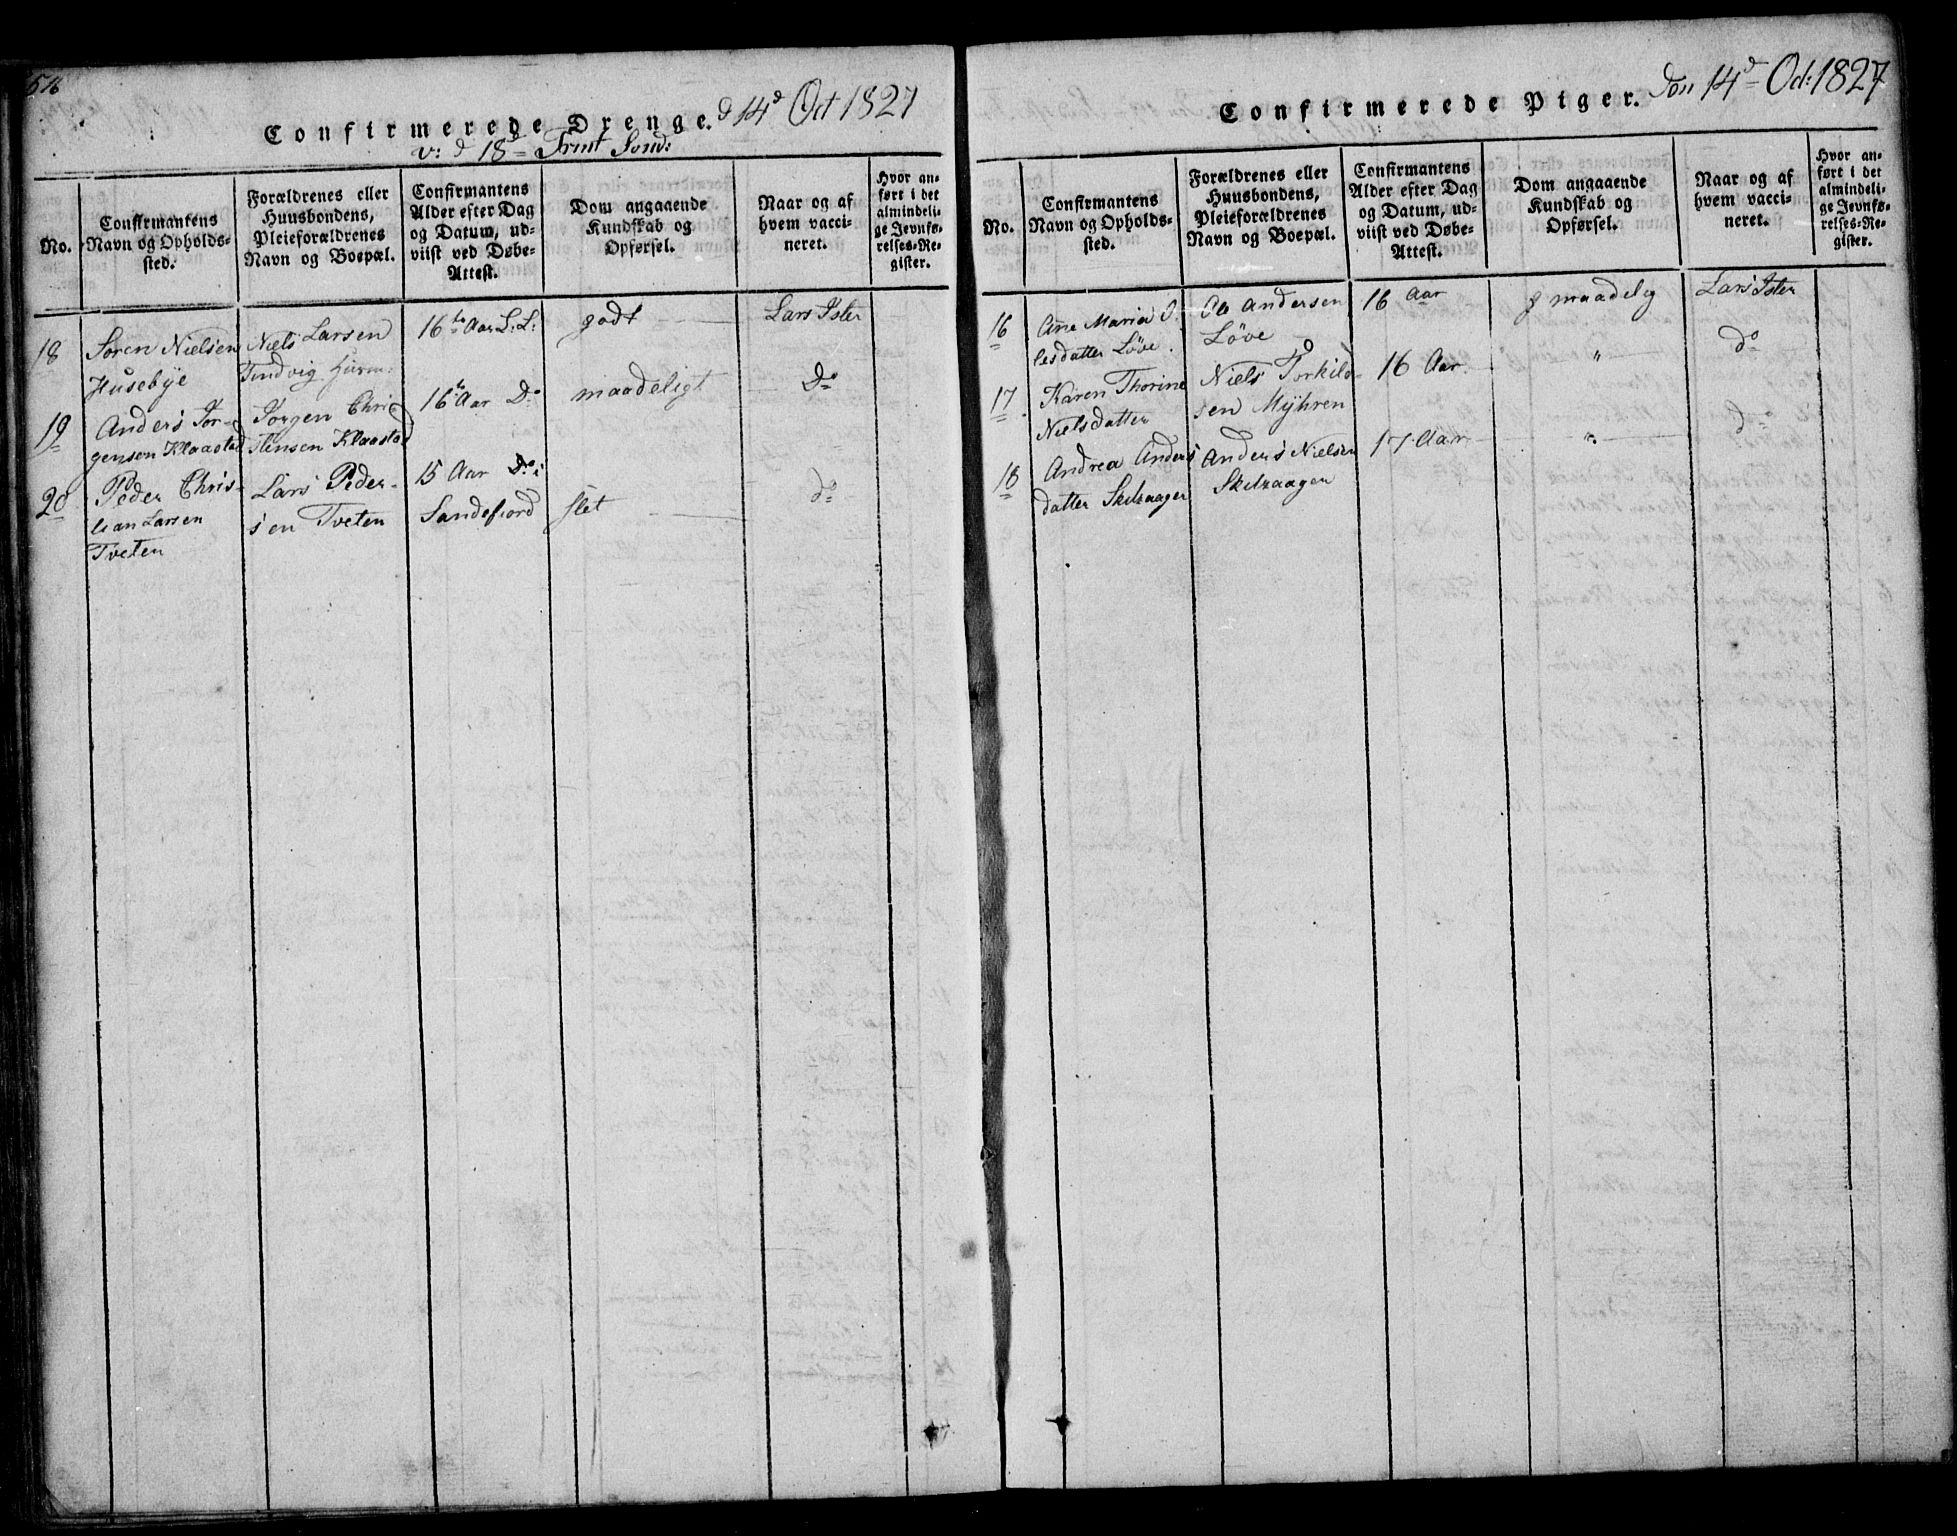 Confirmerede Drenge. d 14d Oct 1827
v: d 18d Trint Sond:
No.
Confirmantens
Navn og Opholds-
sted.
Forældrenes eller
Huusbondens,
Pleieforældrenes
Navn og Boepæl.
Confirmantens
Alder efter Dag
og Datum, ud-
viist ved Døbe-
Attest.
Dom angaaende
Kundskab og
Opførsel.
Naar og af
hvem vacci-
neret.
Hvor an-
ført i det
almindeli-
ge Jevnfø-
relses-Re-
gister.
18
Søren Nielsen
Husebye
Niels Larsen
Tindvig
16 Aar L: L:
godt
Lars Ister
19
Anders Jør-
gensen Klaastad
Jørgen Chri-
stensen Klaastad
16 Aar Do
maadeligt
Do
20
Peder Chris-
tian Larsen
Tveten
Lars Peder-
sen Tveten
15 Aar Do:
Sandefiord
slet
do
Confirmerede Piger. Den 14d Oct: 1827
No.
Confirmantens
Navn og Opholds-
sted.
Forældrenes eller
Huusbondens,
Pleieforældrenes
Navn og Boepæl.
Confirmantens
Alder efter Dag
og Datum, ud-
viist ved Døbe-
Attest.
Dom angaaende
Kundskab og
Opførsel.
Naar og af
hvem vacci-
neret.
Hvor an-
ført i det
almindeli-
ge Jevnfø-
relses-Re-
gister.
16
Ane Maria O-
lesdatter Løve.
Ole Andersen
Løve
16 Aar
g maadelig
Lars Ister
17
Karen Thorine
Nielsdatter
Niels Torkild-
sen Myhren
16 Aar.
"
do
18
Andrea Anders
datter Skelzaagen
Anders Nielsen
Skelzaagen
17 Aar
"
do